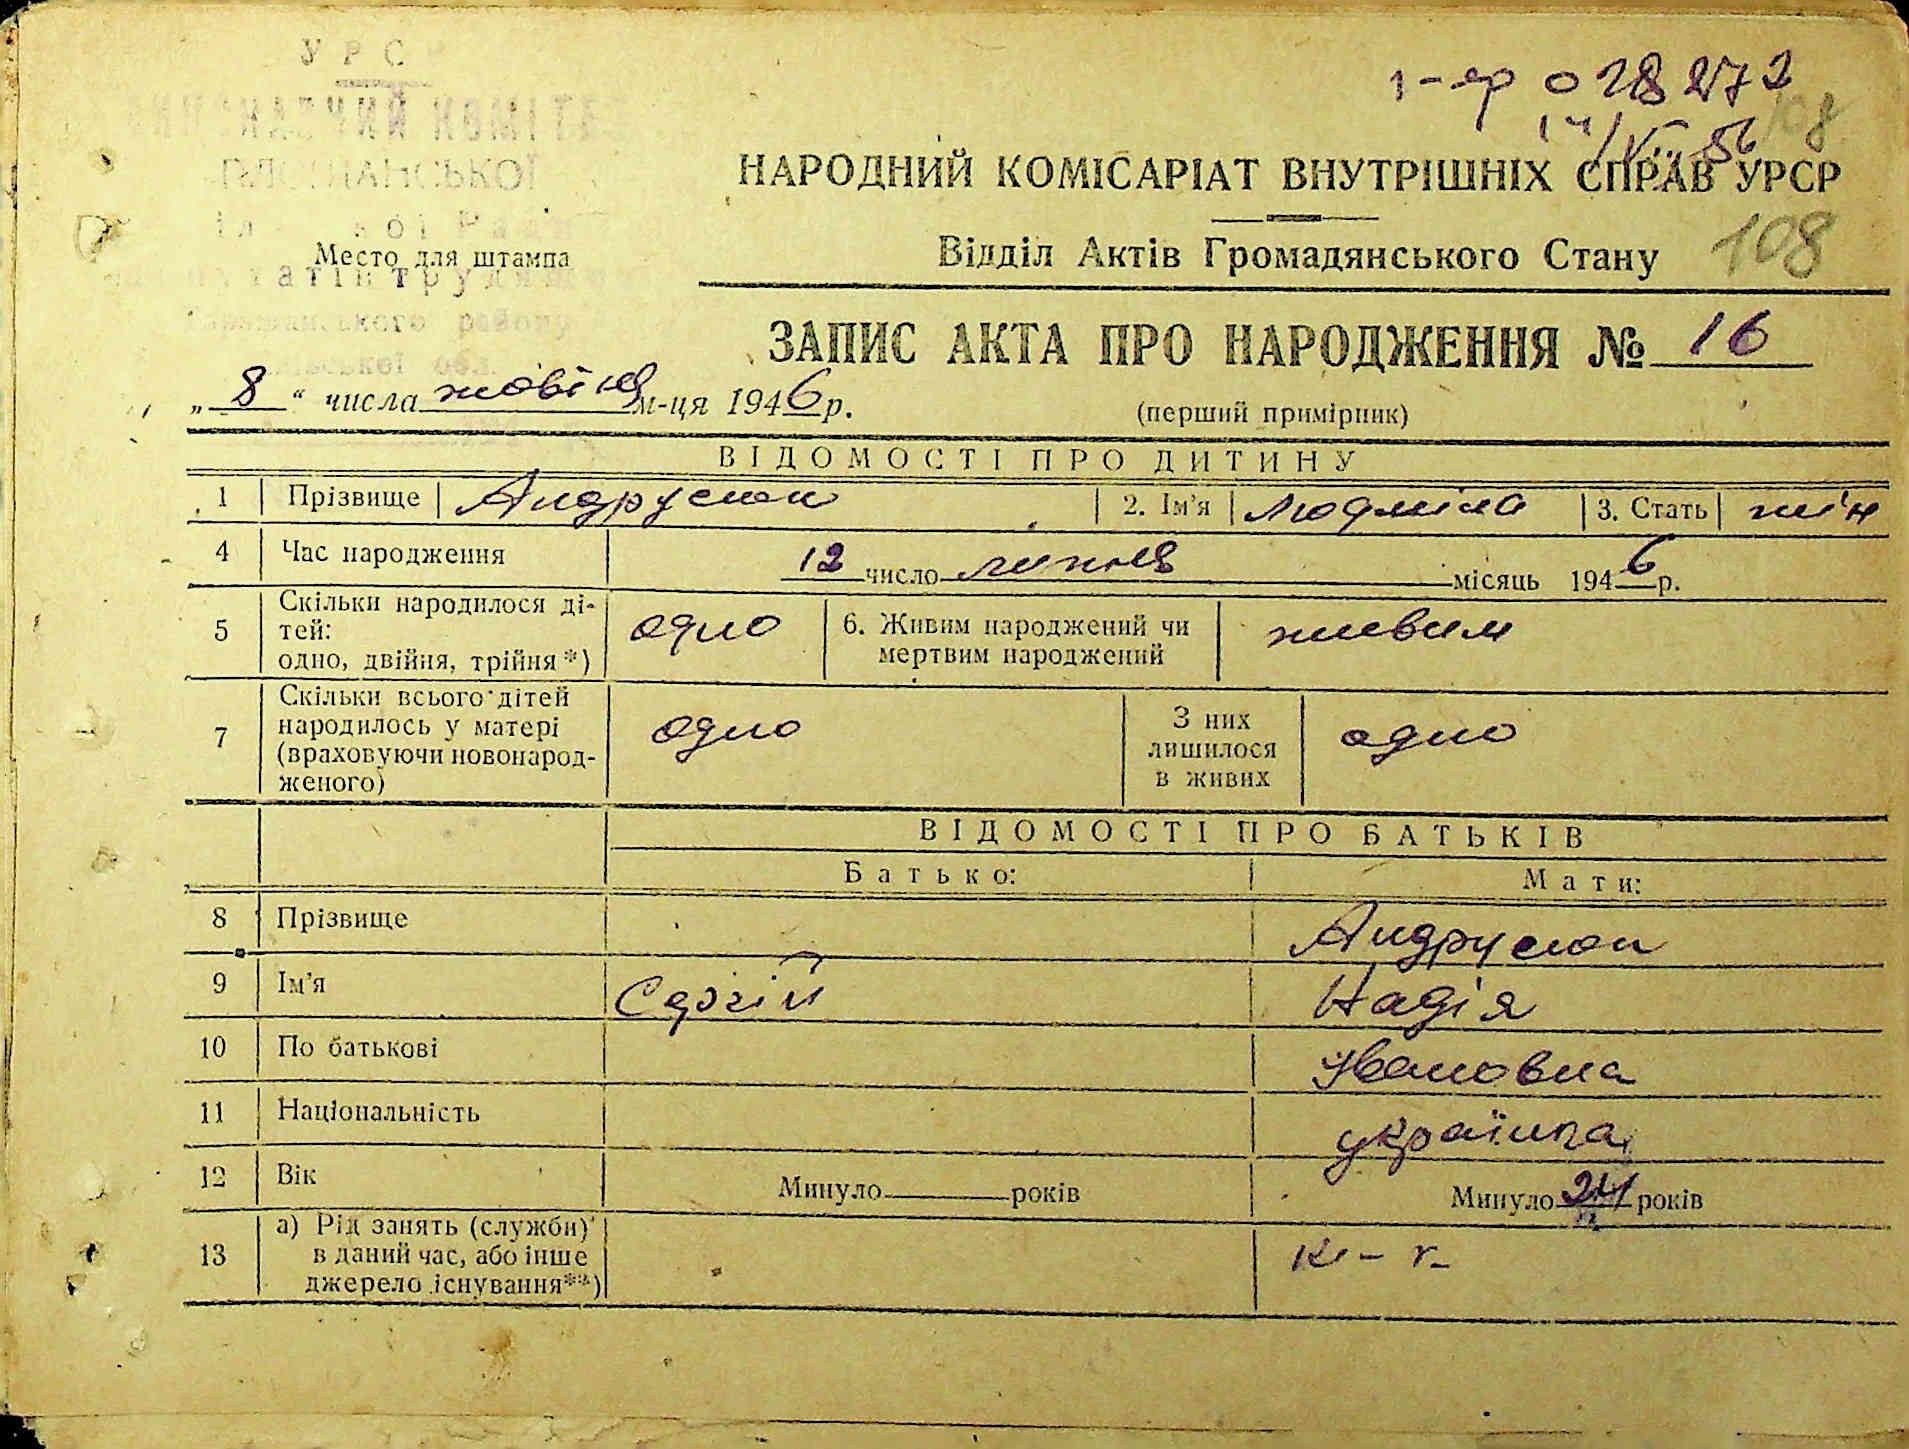 УРС
Место для штампа
1-яр 0 28 272
108
НАРОДНИЙ КОМІСАРІАТ ВНУТРІШНІХ СПРАВ УРСР
Відділ Актів Громадянського Стану 108
ЗАПИС АКТА ПРО НАРОДЖЕННЯ № 16
„ 8 “ числа жовтня м-ця 1946 р. (перший примірник)
ВІДОМОСТІ ПРО ДИТИНУ
1 Прізвище Андрусюк 2. Ім'я Людміла 3. Стать жін
4 Час народження 12 число липня місяць 1946 р.
5 Скільки народилося ді-
тей:
одно, двійня, трійня*) одно 6. Живим народжений чи
мертвим народжений живим
7 Скільки всього дітей
народилось у матері
(враховуючи новонарод-
женого) одно З них
лишилося
в живих одно
ВІДОМОСТІ ПРО БАТЬКІВ
Батько: Мати:
8 Прізвище Андрусюк
9 Ім'я Сергій Надія
10 По батькові Івановна
11 Національність українка
12 Вік Минуло років Минуло 24 років
13 а) Рід занять (служби)
в даний час, або інше
джерело існування**) к-г.